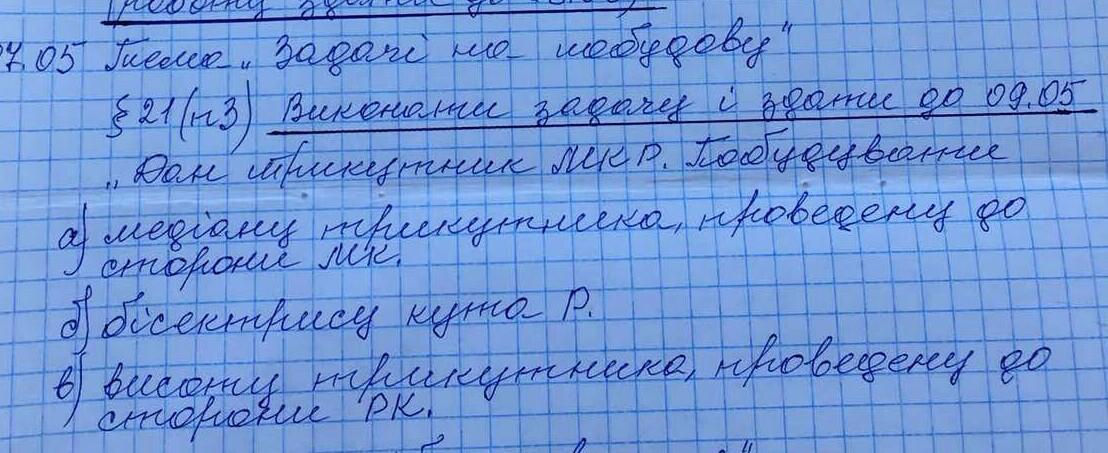 роботу здати до
7.05 Тема „Задачі на побудову"
§21(п3) Виконати задачу і здати до 09.05
„Дан трикутник МКР. Побудувати
а) медіану трикутника, проведену до
сторони МК.
б) бісектрису кута Р.
в) висоту трикутника, проведену до
сторони РК.